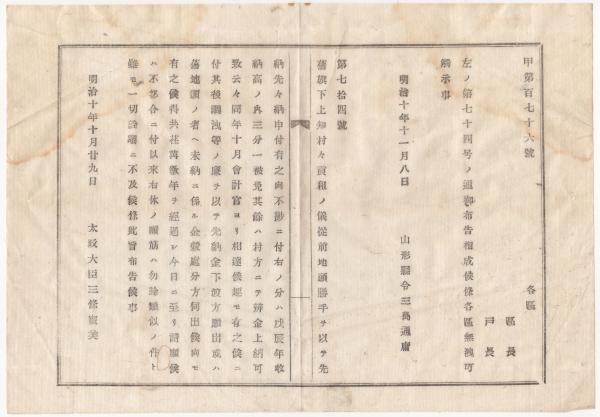 甲第百七十六號
各區
區長
戸長
左ノ第七十四号ノ通御布告相成候條各區無洩可
觸示事
明治十年十一月八日
山形縣令三島通庸
第七拾四號
舊旗下上知村々貢租ノ儀從前地頭勝手ヲ以テ先
納先々納申付有之向不渉ニ付右ノ分ハ戊辰年收
納高ノ内三分一被免其餘ハ村方ニテ辨金上納可
致云々同年十月會計官ヨリ相達候趣モ有之候ニ
付其後調洩等ノ廉ヲ以テ先納金下渡方願出或ハ
舊地頭ノ者ヘ未納ニ係ル金穀處分方伺出候向モ
有之候得共在苒數年ヲ經過シ今日ニ至リ請願候
ハ不都合ニ付以來右休ノ願筋ハ勿論類似ノ件ト
雖モ一切詮議ニ不及候條此旨布告候事
明治十年十月廿九日
太政大臣三條實美